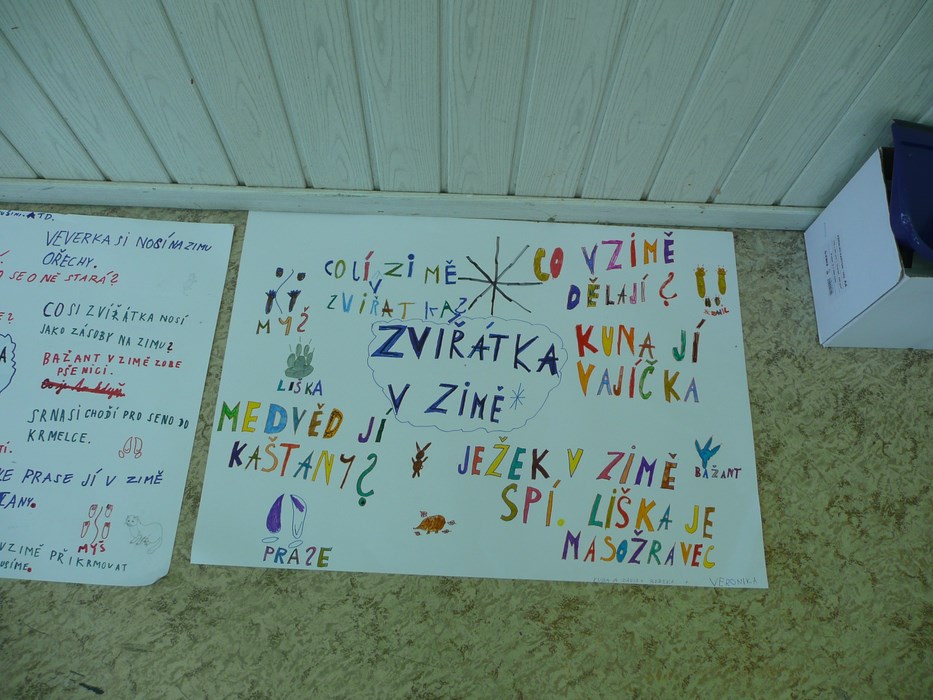 ATD.
VEVERKA SI NOSÍ NA ZIMU
OŘECHY.
SE O NĚ STARÁ?
CO SI ZVÍŽÁTKA NOSÍ
JAKO ZÁSOBY NA ZIMU?
BAŽANT V ZIMĚ ZOBE
PŠENICI.
SRNA SI CHODÍ PRO SENO DO
KRMELCE.
PRASE JÍ V ZIMĚ
MYŠ
V ZIMĚ PŘIKRMOVAT
CO JÍ V ZIMĚ
ZVIŘATKA?
CO V ZIMĚ
DĚLAJÍ?
MYŠ
LIŠKA
ZVIŘÁTKA
V ZIMĚ
KUNA JÍ
VAJÍČKA
MEDVĚD JÍ
KAŠTANY?
JEŽEK V ZIMĚ
SPÍ. LIŠKA JE
MASOŽRAVEC
BAŽANT
PRASE
VERONIKA